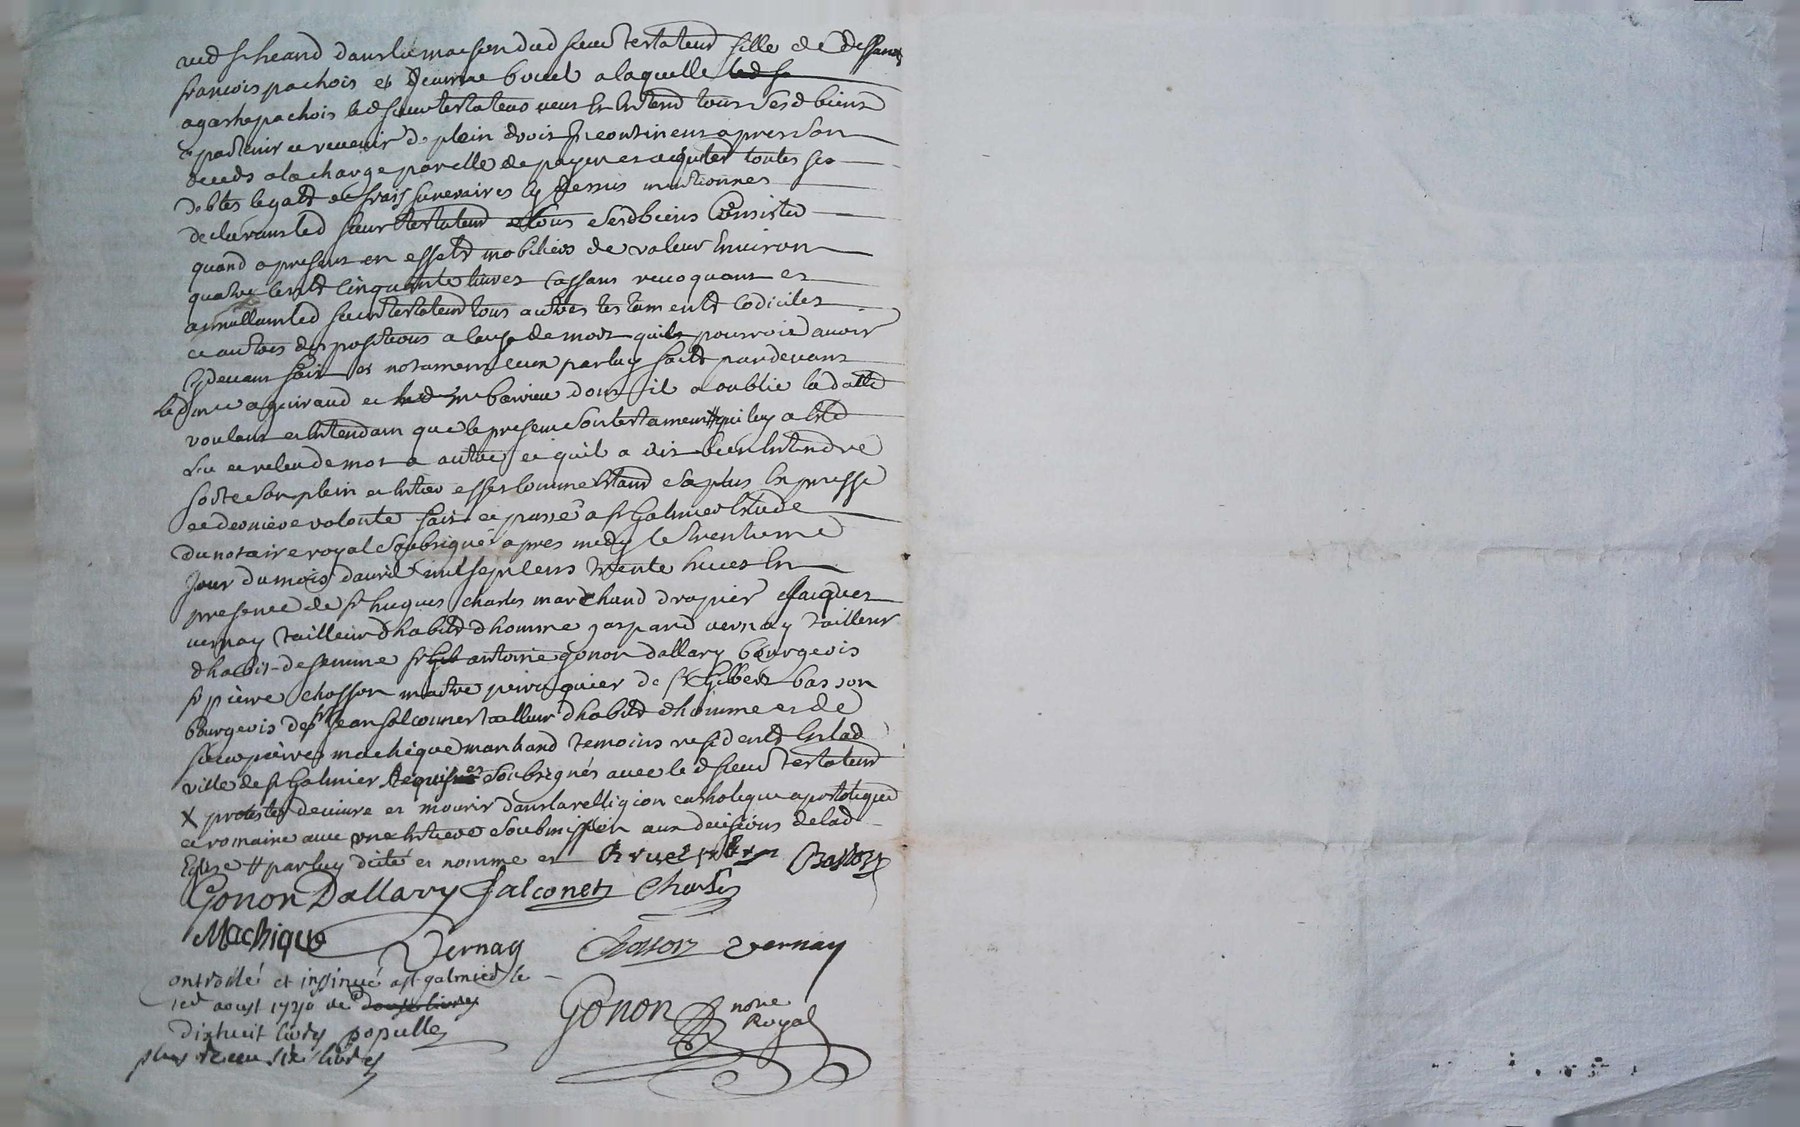 dans la maison dud sieur testateur fille de deffunct
francois pachois et Jeanne bouel a laquelle led s
agathe pachois led sieur testateur veut et entend tous sesd biens
apartenir et revenir de plein droit Incontinent apres son
deceds a la charge par elle de payer et acquiter toutes ses
debtes legatz et frais funeraires cy dessus mentionnes
declarant led sieur testateur tous sesd biens consister
quand a present en effetz mobiliers de valeur Environ
quatre centz cinquante livres cassant revoquant et
annullant led sieur testateur tous autres testamentz codiciles
et autres dispositions a cause de mort quil pourroit avoir
cy devant fait et notament un par luy fait pardevant
led me aguiraud et barrieu dont il a oublié la datte
voulant et entendant que le present son testament # qui luy a Eté
Leu et releu de mot a autre et qu'il a dit bien entendre
sorte son plein et entier effet comme Etant sa plus Expresse
et derniere volonté fait et passé a st Galmier Etude
du notaire royal soubsigné apres midy le trentieme
Jour du mois davril mil sept cens trente huict En
presence de sr hugues charles marchand drapier Jacques
vernay tailleur dhabitz dhomme gaspard vernay tailleur
dhabit de femme sr antoine gonon dallary bourgeois
sr pierre chosson maitre peruquier de sr Gilbert basson
bourgeois de sr Jean falconet tailleur dhabitz dhomme et de
sieur pierre machique marchand temoins residentz En lad
ville de st Galmier Requis et soubsignés avec le d sieur testateur
X proteste de vivre et mourir dans la relligion catholique apostolique
et romaine avec une entiere soubmission aux decisions de lad
Eglise # par luy dicté et nommé et Basson
Gonon Dallary falconet Charles
Machique Vernay Chosson vernay
Controllé et insinué a st galmier le
1er aoust 1740 Re douze livres
dixhuit livres populle
plus receu six livres
Gonon nore
Royal